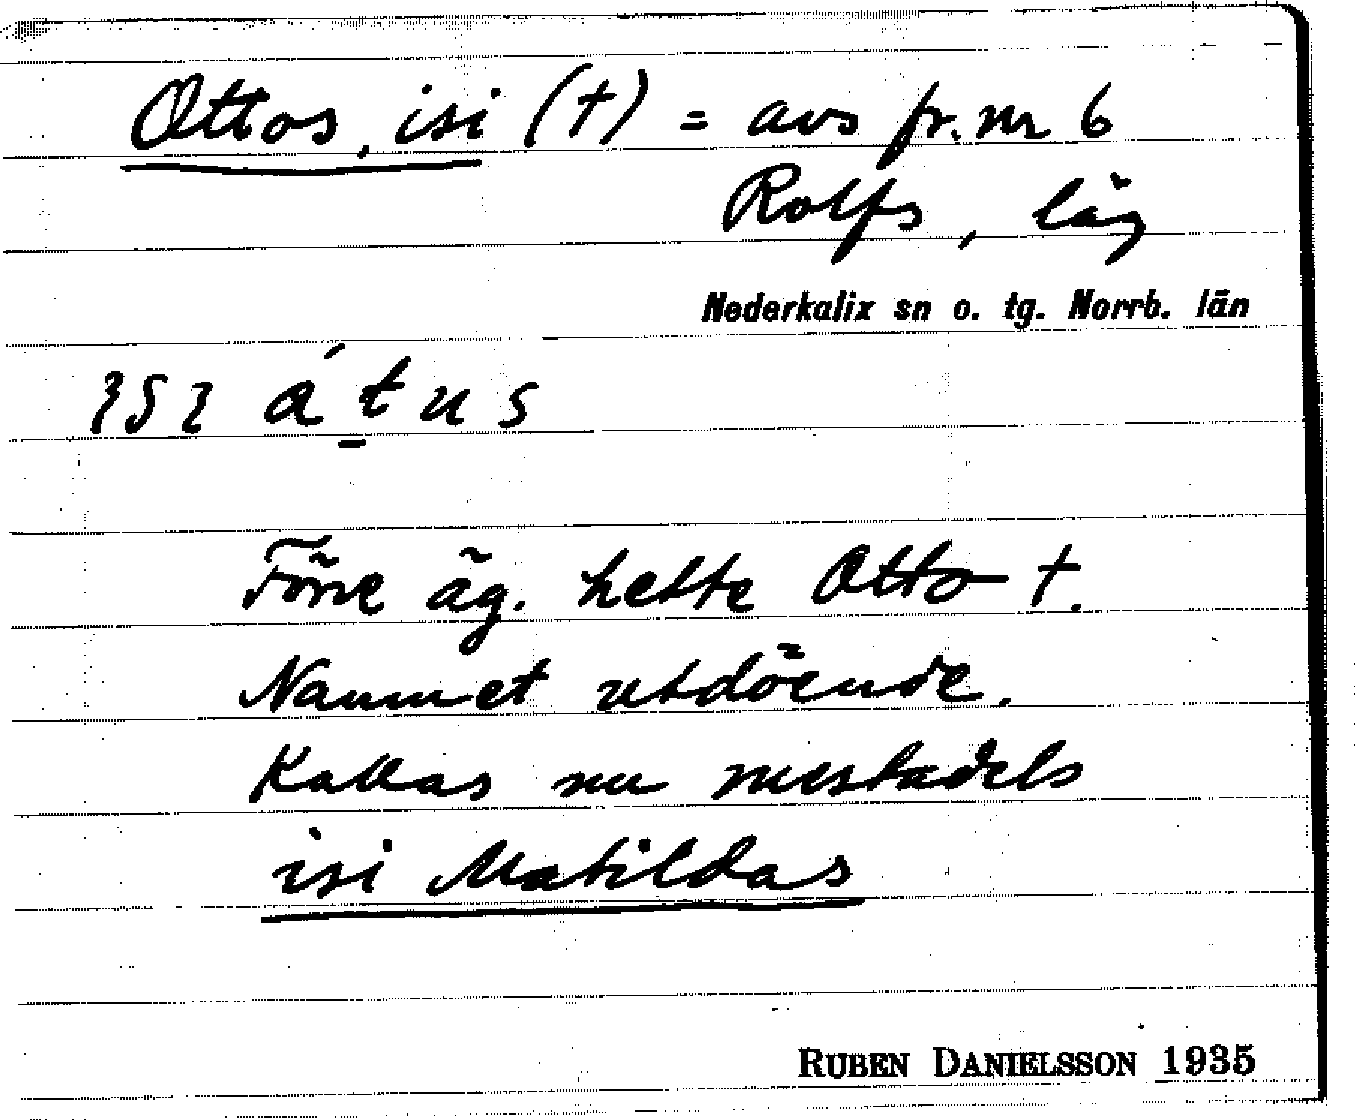 Ottos, isi (†) = avs fr. nr 6
Rolfs, läg
Nederkalix sn o. tg. Norrb. län
átus
Förre äg. hette Otto †.
Namnet utdöende.
Kallas nu mestadels
isi Matildas
RUBEN DANIELSSON 1935